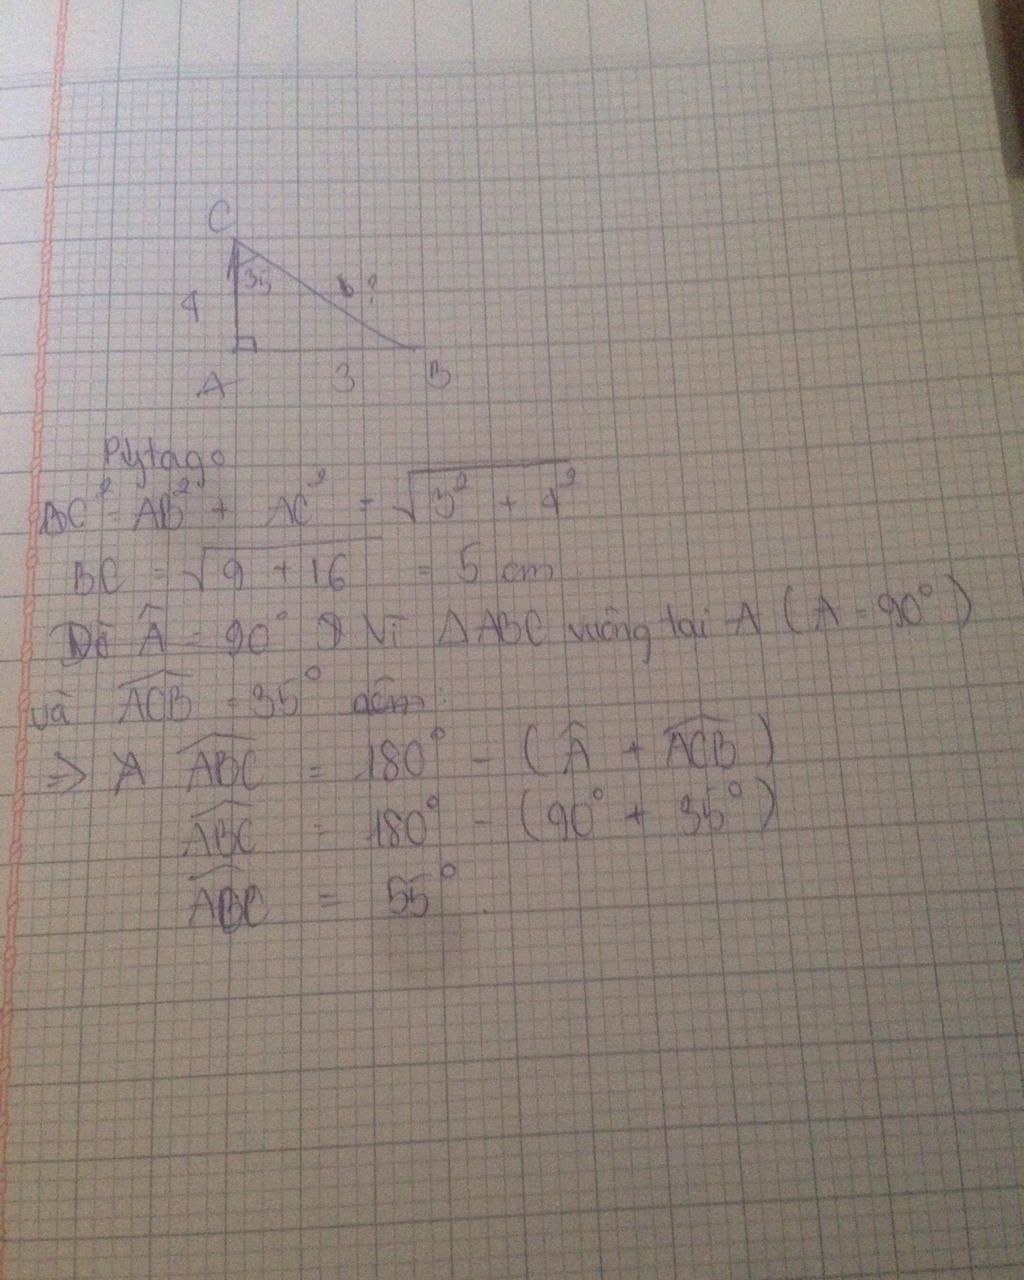 C
35
4
?
A
3
B
Pytago
BC² = AB² + AC² = √3² + 4²
BC = √9 + 16 = 5 cm
Â = 90° Vì ΔABC vuông tại A (A = 90°)
và ACB = 35°
=> ABC = 180° - (Â + ACB)
ABC = 180° - (90° + 35°)
ABC = 55°.